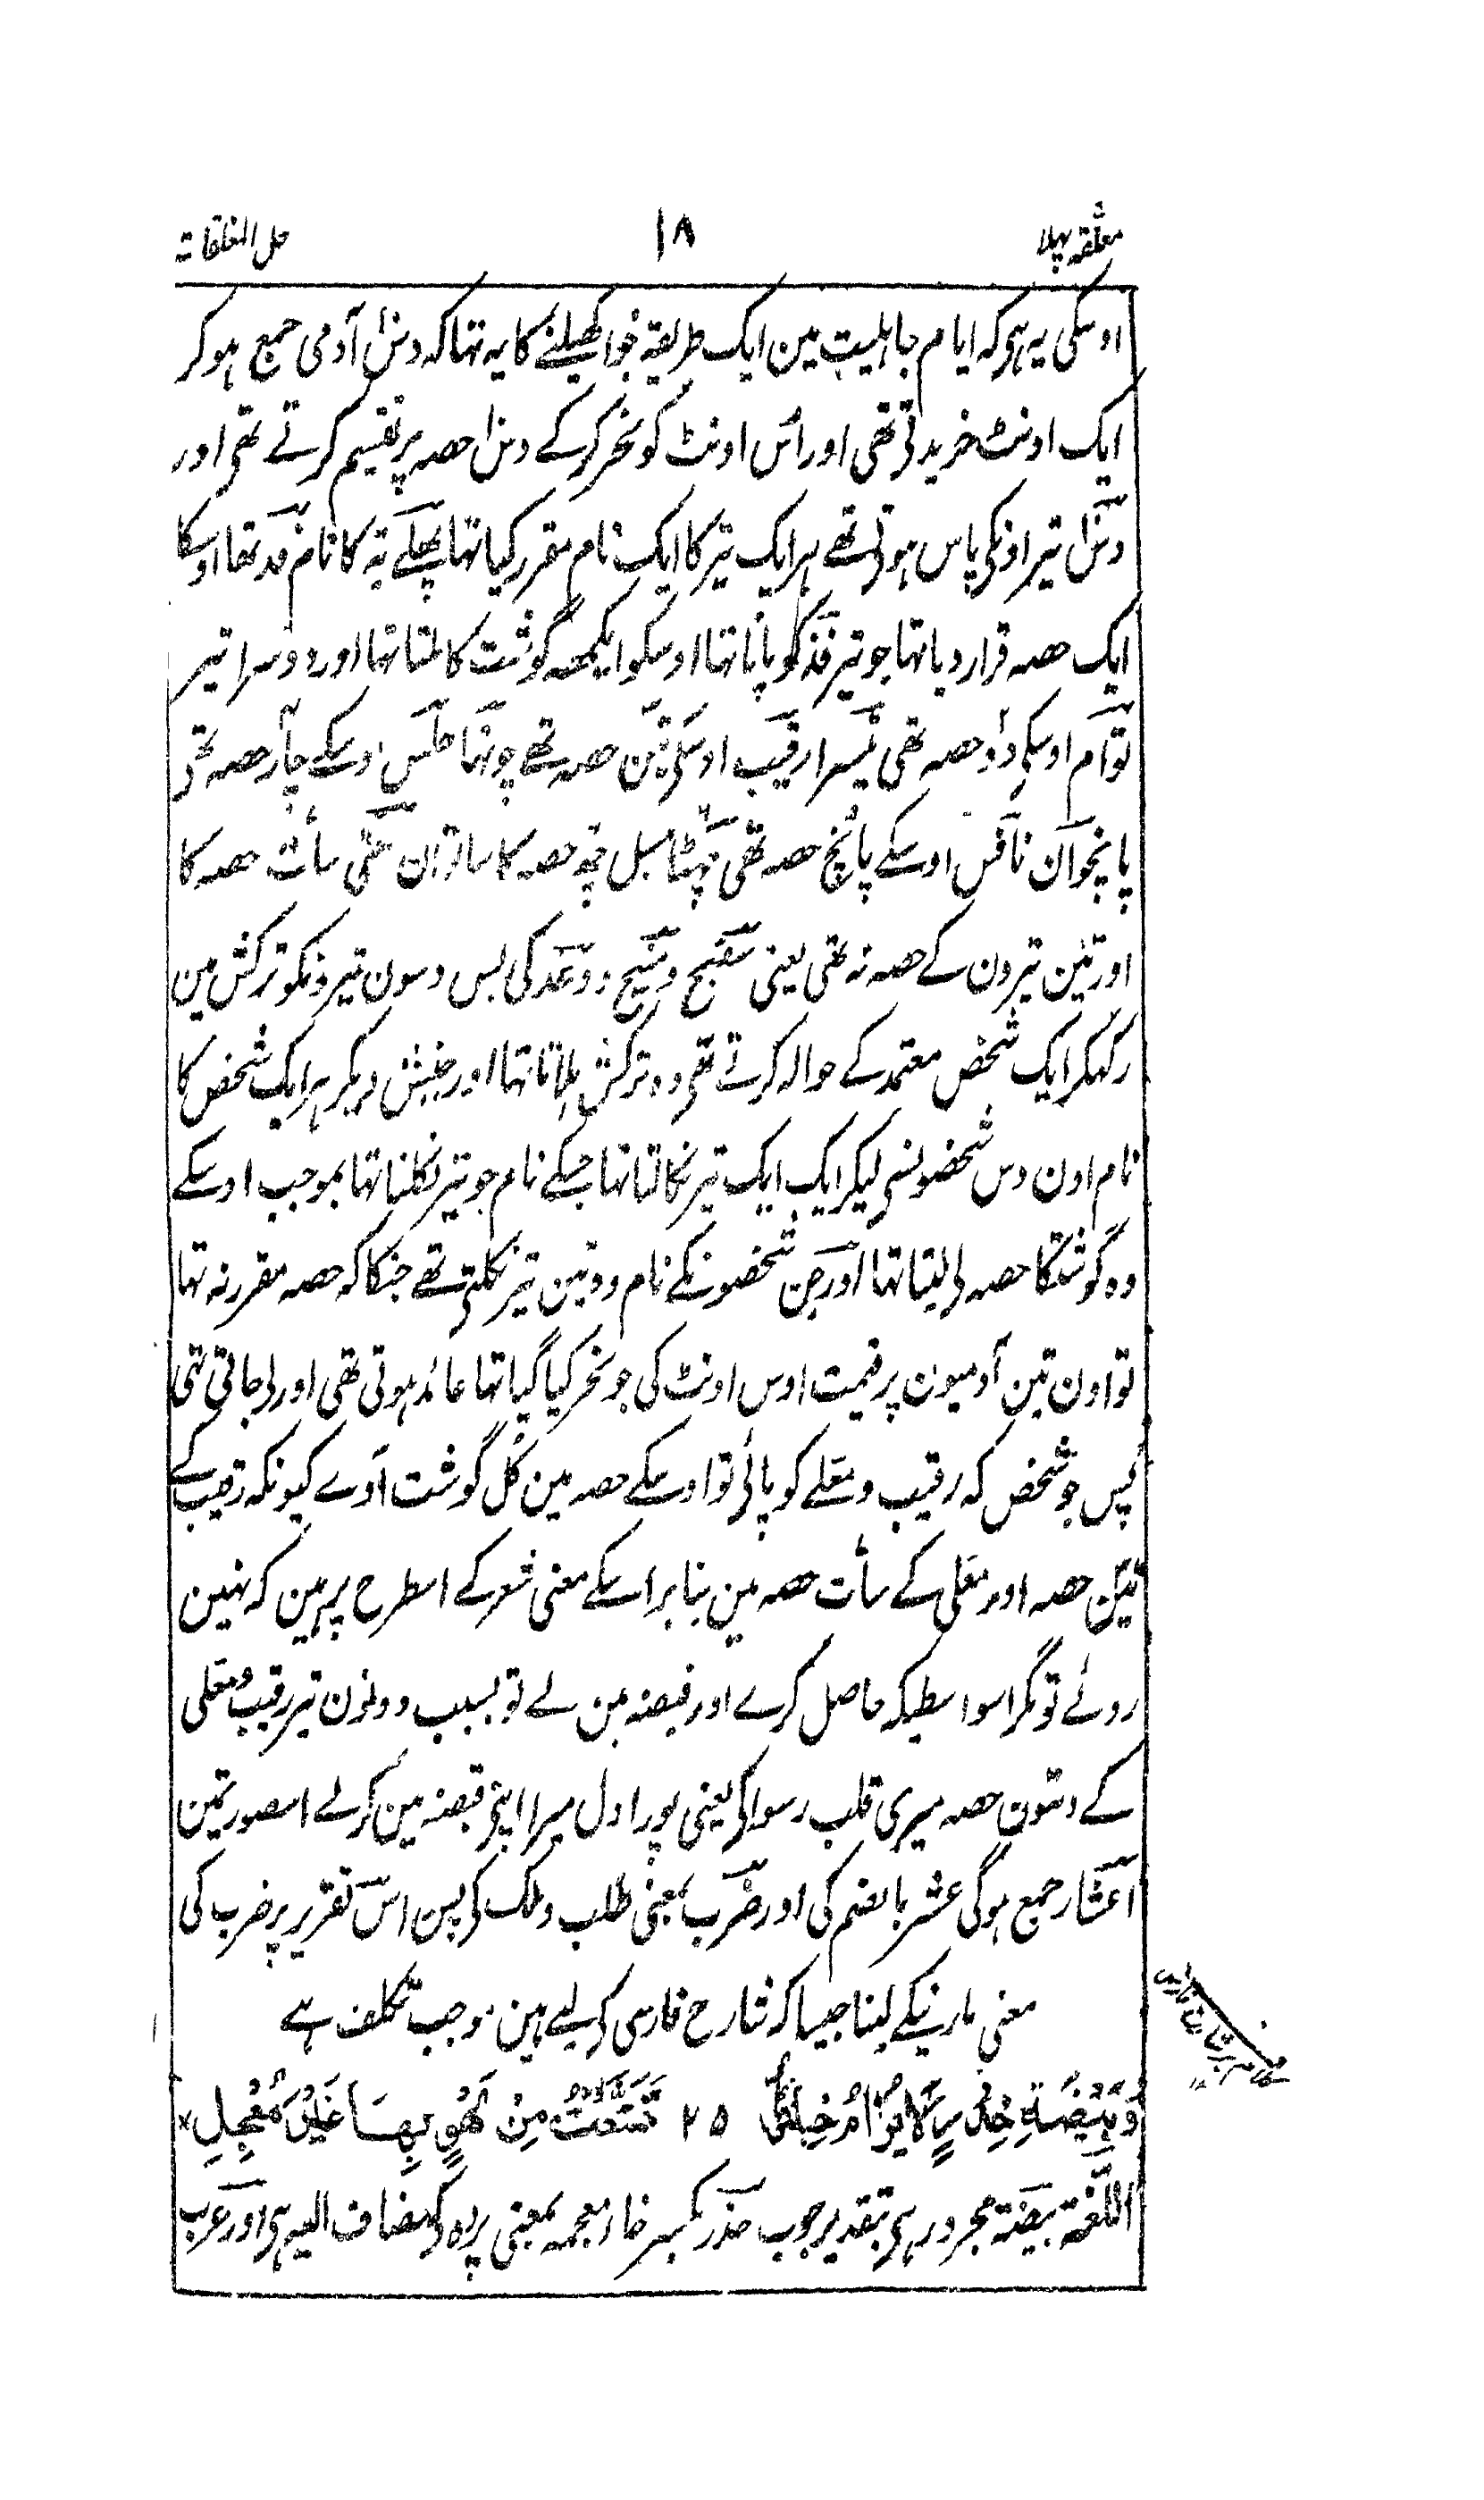 معلقہ پہلا ۱۸ حل المغلقات
اوسکی یہ ہی کہ ایام جاہلیت مین ایک طریقہ جوا کھیلنے کا یہ تہا کہ دس آدمی جمع ہو کر
ایک اونٹ خریدتی تھی اور اُس اونٹ کو نحر کرکے دس حصہ پر تقسیم کرتے تھی اور
دس تیر اونکی پاس ہوتی تھے ہر ایک تیر کا ایک نام مقرر کیا تہا پہلے تیر کا نام فذ تھا اوسکا
ایک حصہ قرار دیا تہا جو تیر فذ کو پاتا تہا اوسکو ایکحصہ گوشت کا ملتا تہا اور دوسرا تیر
توأم اوسکی دو حصہ تھی تیسرا رقیب اوسکی تین حصہ تھے چوتہا حلس اوسکے چار حصہ تھی
پانچوان نافس اوسکے پانچ حصہ تھی چہٹا مسبل چھ حصہ کا ساتوان معلی سات حصہ کا
اور تین تیرون کے حصہ نہ تھی یعنی سفیح و منیح و وغد کی پس دسون تیرونکو ترکش مین
رکہکر ایک شخص معتمد کے حوالہ کرتے تھی وہ ترکش ہلاتا تہا اور جنبش دیکر ہر ایک شخص کا
نام اون دس شخصونسی لیکر ایک ایک تیر نکالتا تہا جسکے نام جو تیر نکلتا تہا بموجب اوسکے
وہ گوشتکا حصہ لی لیتا تہا اور جن شخصونکے نام وہ تین تیر نکلتی تھے جنکا کہ حصہ مقرر نہ تہا
تو اون تین آدمیون پر قیمت اوس اونٹ کی جو نحر کیا گیا تہا عائد ہوتی تھی اور لی جاتی تھی
پس جو شخص کہ رقیب و معلے کو پائی تو اوسکے حصہ مین کل گوشت آوے کیونکہ رقیب کے
تین حصہ اور معلی کے سات حصہ مین بنا بر اسکے معنی شعر کے اسطرح پر ہین کہ نہین
روئے تو مگر اسواسطیکہ حاصل کرے اور قبضہ مین لے تو بسبب دونون تیر رقیب و معلی
کے دسون حصہ میری قلب رسوا کی یعنی پورا دل میرا اپنی قبضہ مین کرلے اسصورتمین
اعشار جمع ہوگی عشر بالضم کی اور ضرب بمعنی طلب و ملک کی پس اس تقریر پر ضرب کی
معنی مارنیکے لینا جیسا کہ شارح فارسی کی لیے ہین موجب تکلف ہے
وَبَيْضَةِ خِدْرٍ لَا يُرَامُ خِبَاؤُهَا ۲۵ تَمَتَّعْتُ مِنْ لَهْوٍ بِهَا غَيْرَ مُعْجَلِ
اللغۃ بیضۃ مجرور ہی بتقدیر جوب خدر بکسر خاء معجمہ بمعنی پردہ کی مضاف الیہ ہی اور عرب